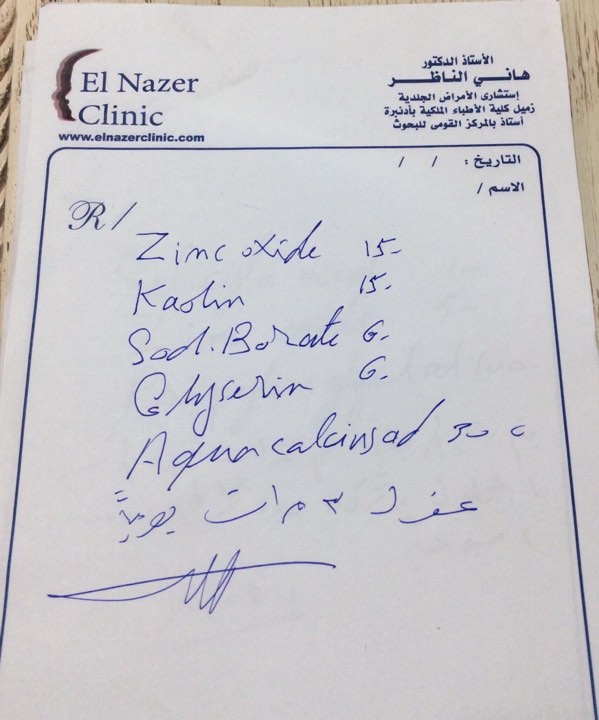 El Nazer
Clinic
www.elnazerclinic.com
الأستاذ الدكتور
هاني الناظر
إستشارى الأمراض الجلدية
زميل كلية الأطباء الملكية بأدنبرة
أستاذ بالمركز القومى للبحوث
التاريخ : / /
الاسم /
R/
Zinc oxide 15-
Kaolin 15-
Sod. Borate 6-
Glyserin 6-
Aqua calcin sad 30 c
٣ مرات يومياً